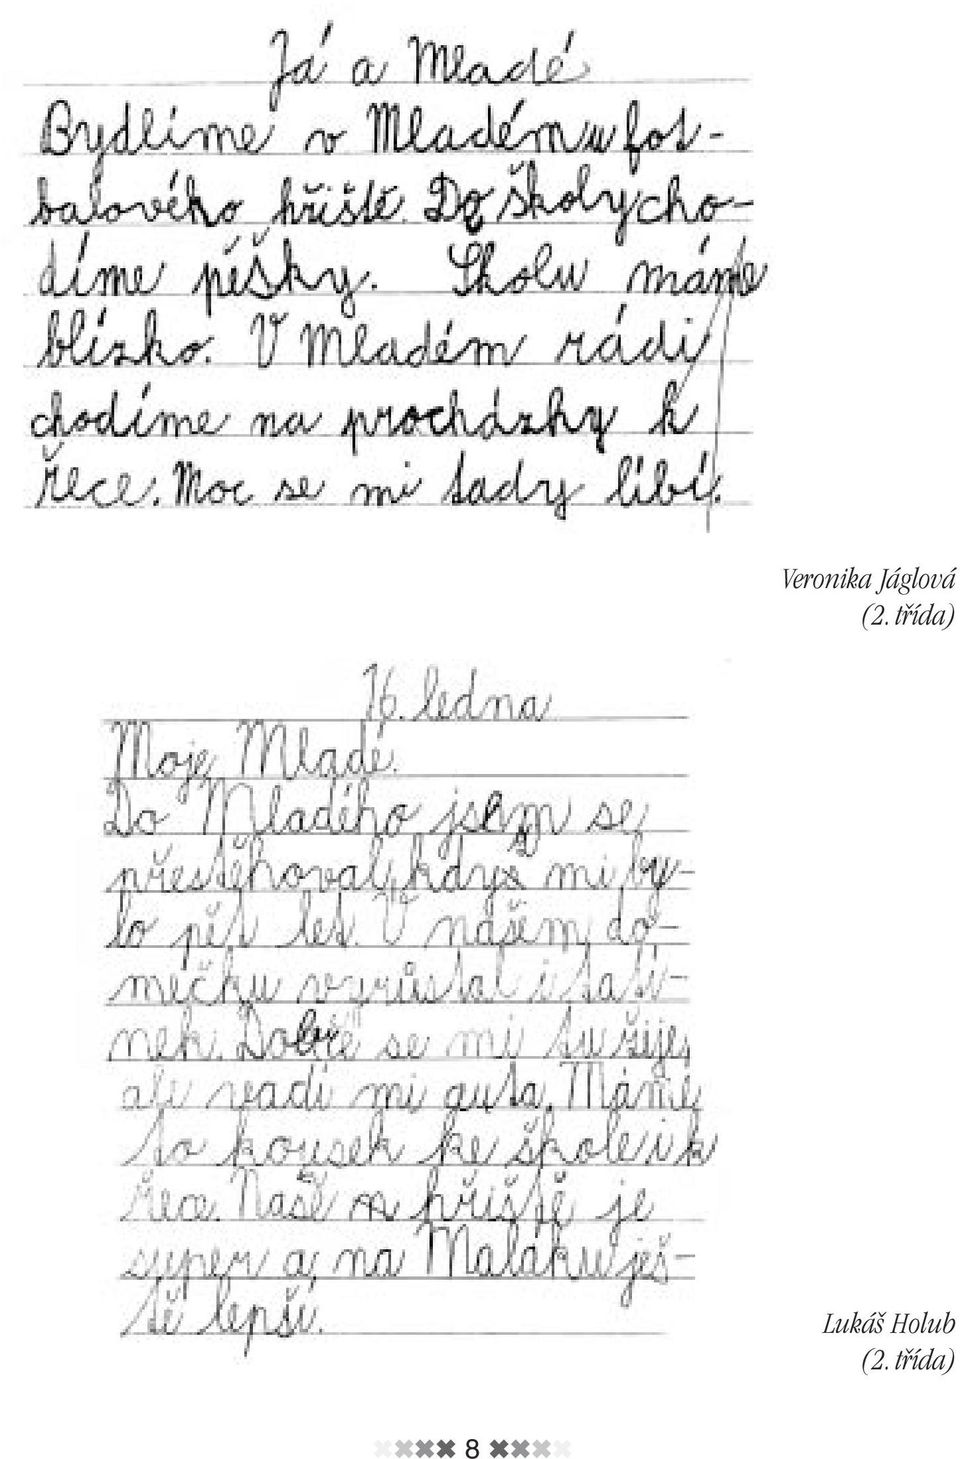 Já a Mladé
Bydlíme v Mladém u fot-
balového hřiště. Do školy cho-
díme pěšky. Školu máme
blízko. V Mladém rádi
chodíme na procházky k
řece. Moc se mi tady líbí.
Veronika Jáglová
(2. třída)
16. ledna
Moje Mladé.
Do Mladého jsem se
přestěhoval, když mi by-
lo pět let. V našem do-
mečku vyrůstal i tatí-
nek. Dobře se mi tu žije,
ale vadí mi auta. Máme
to kousek ke škole i k
řece. Naše hřiště je
super a na Maláku ješ-
tě lepší.
Lukáš Holub
(2. třída)
8